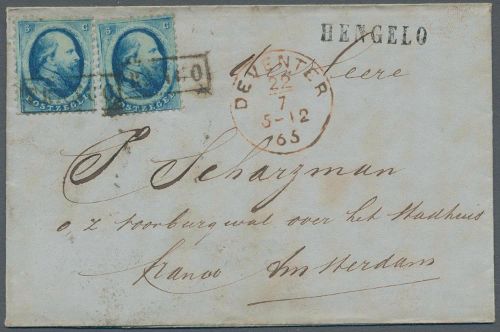 5 C 5 C
POSTZEGEL POSTZEGEL
FRANCO
HENGELO
DEVENTER
22
7
8-12
65
Den Heere
P Scharzman
o z voorburgwal over het Stadhuis
franco Amsterdam